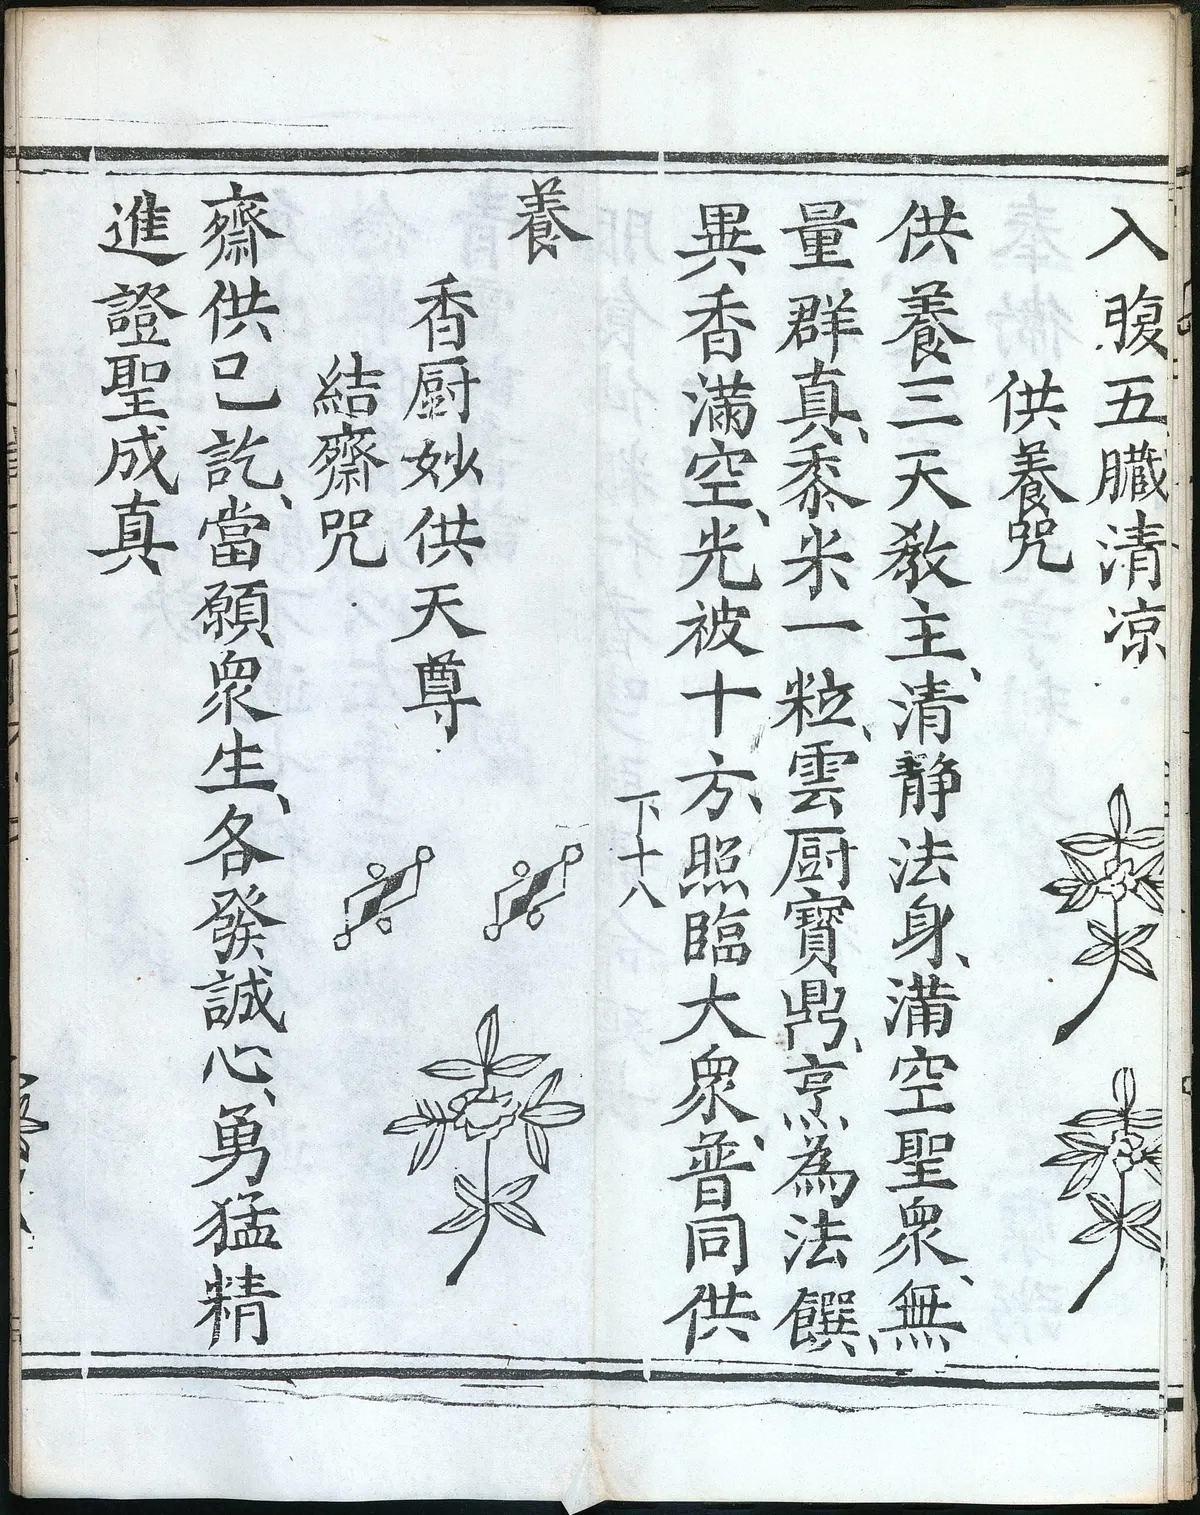 入腹五臟清凉
供養咒
供養三天教主、清静法身、滿空聖衆、無
量群真、黍米一粒、雲厨寳鼎、烹為法饌、
異香滿空、光被十方、照臨大衆、普同供
下十八
養
香厨妙供天尊
結齋咒
齋供已訖、當願衆生、各發誠心、勇猛精
進證聖成真